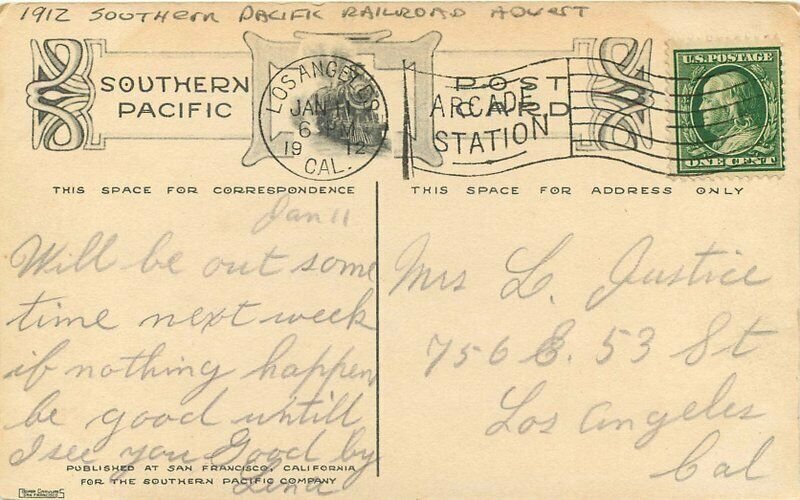 1912 SOUTHERN PACIFIC RAILROAD ADVERT
SOUTHERN
PACIFIC
LOS ANGELES
JAN 11
6 PM
1912
CAL.
POST
CARD
ARCADE
STATION
U.S. POSTAGE
ONE CENT
THIS SPACE FOR CORRESPONDENCE
THIS SPACE FOR ADDRESS ONLY
Jan 11
Will be out some
time next week
if nothing happen
be good untill
I see you Good by
Lena
Mrs L. Justice
756 E. 53 St
Los Angeles
Cal
PUBLISHED AT SAN FRANCISCO, CALIFORNIA
FOR THE SOUTHERN PACIFIC COMPANY